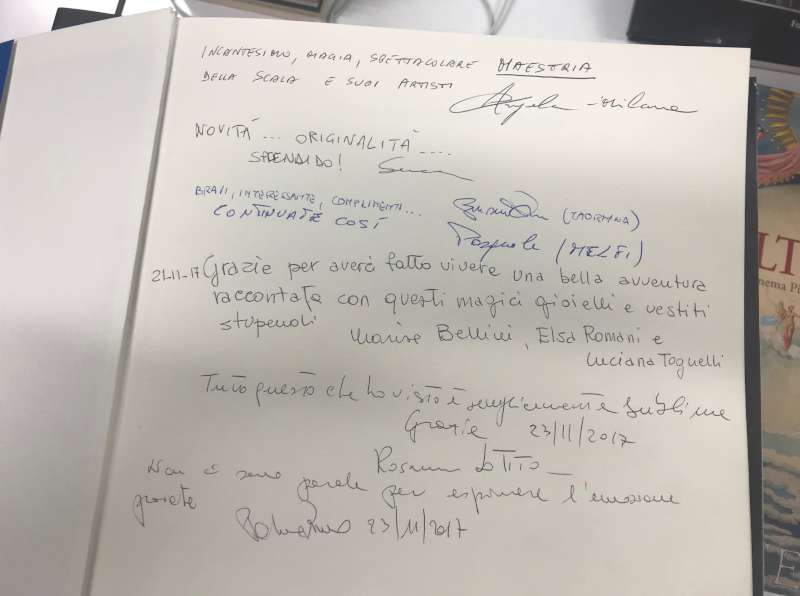 INCANTESIMO, MAGIA, SPETTACOLARE MAESTRIA
DELLA SCALA E SUOI ARTISTI
Angela Milano
NOVITÀ... ORIGINALITÀ....
SPLENDIDO!
BRAVI, INTERESSANTE, COMPLIMENTI...
CONTINUATE COSÌ
(TAORMINA)
Pasquale (MELFI)
21-11-17 Grazie per averci fatto vivere una bella avventura
raccontata con questi magici gioielli e vestiti
stupendi
Marisa Bellini, Elsa Romani e
Luciana Tognelli
Tutto questo che ho visto è semplicemente sublime
Grazie 23/11/2017
Lo Tito
Non ci sono parole per esprimere l'emozione
23/11/2017
LT